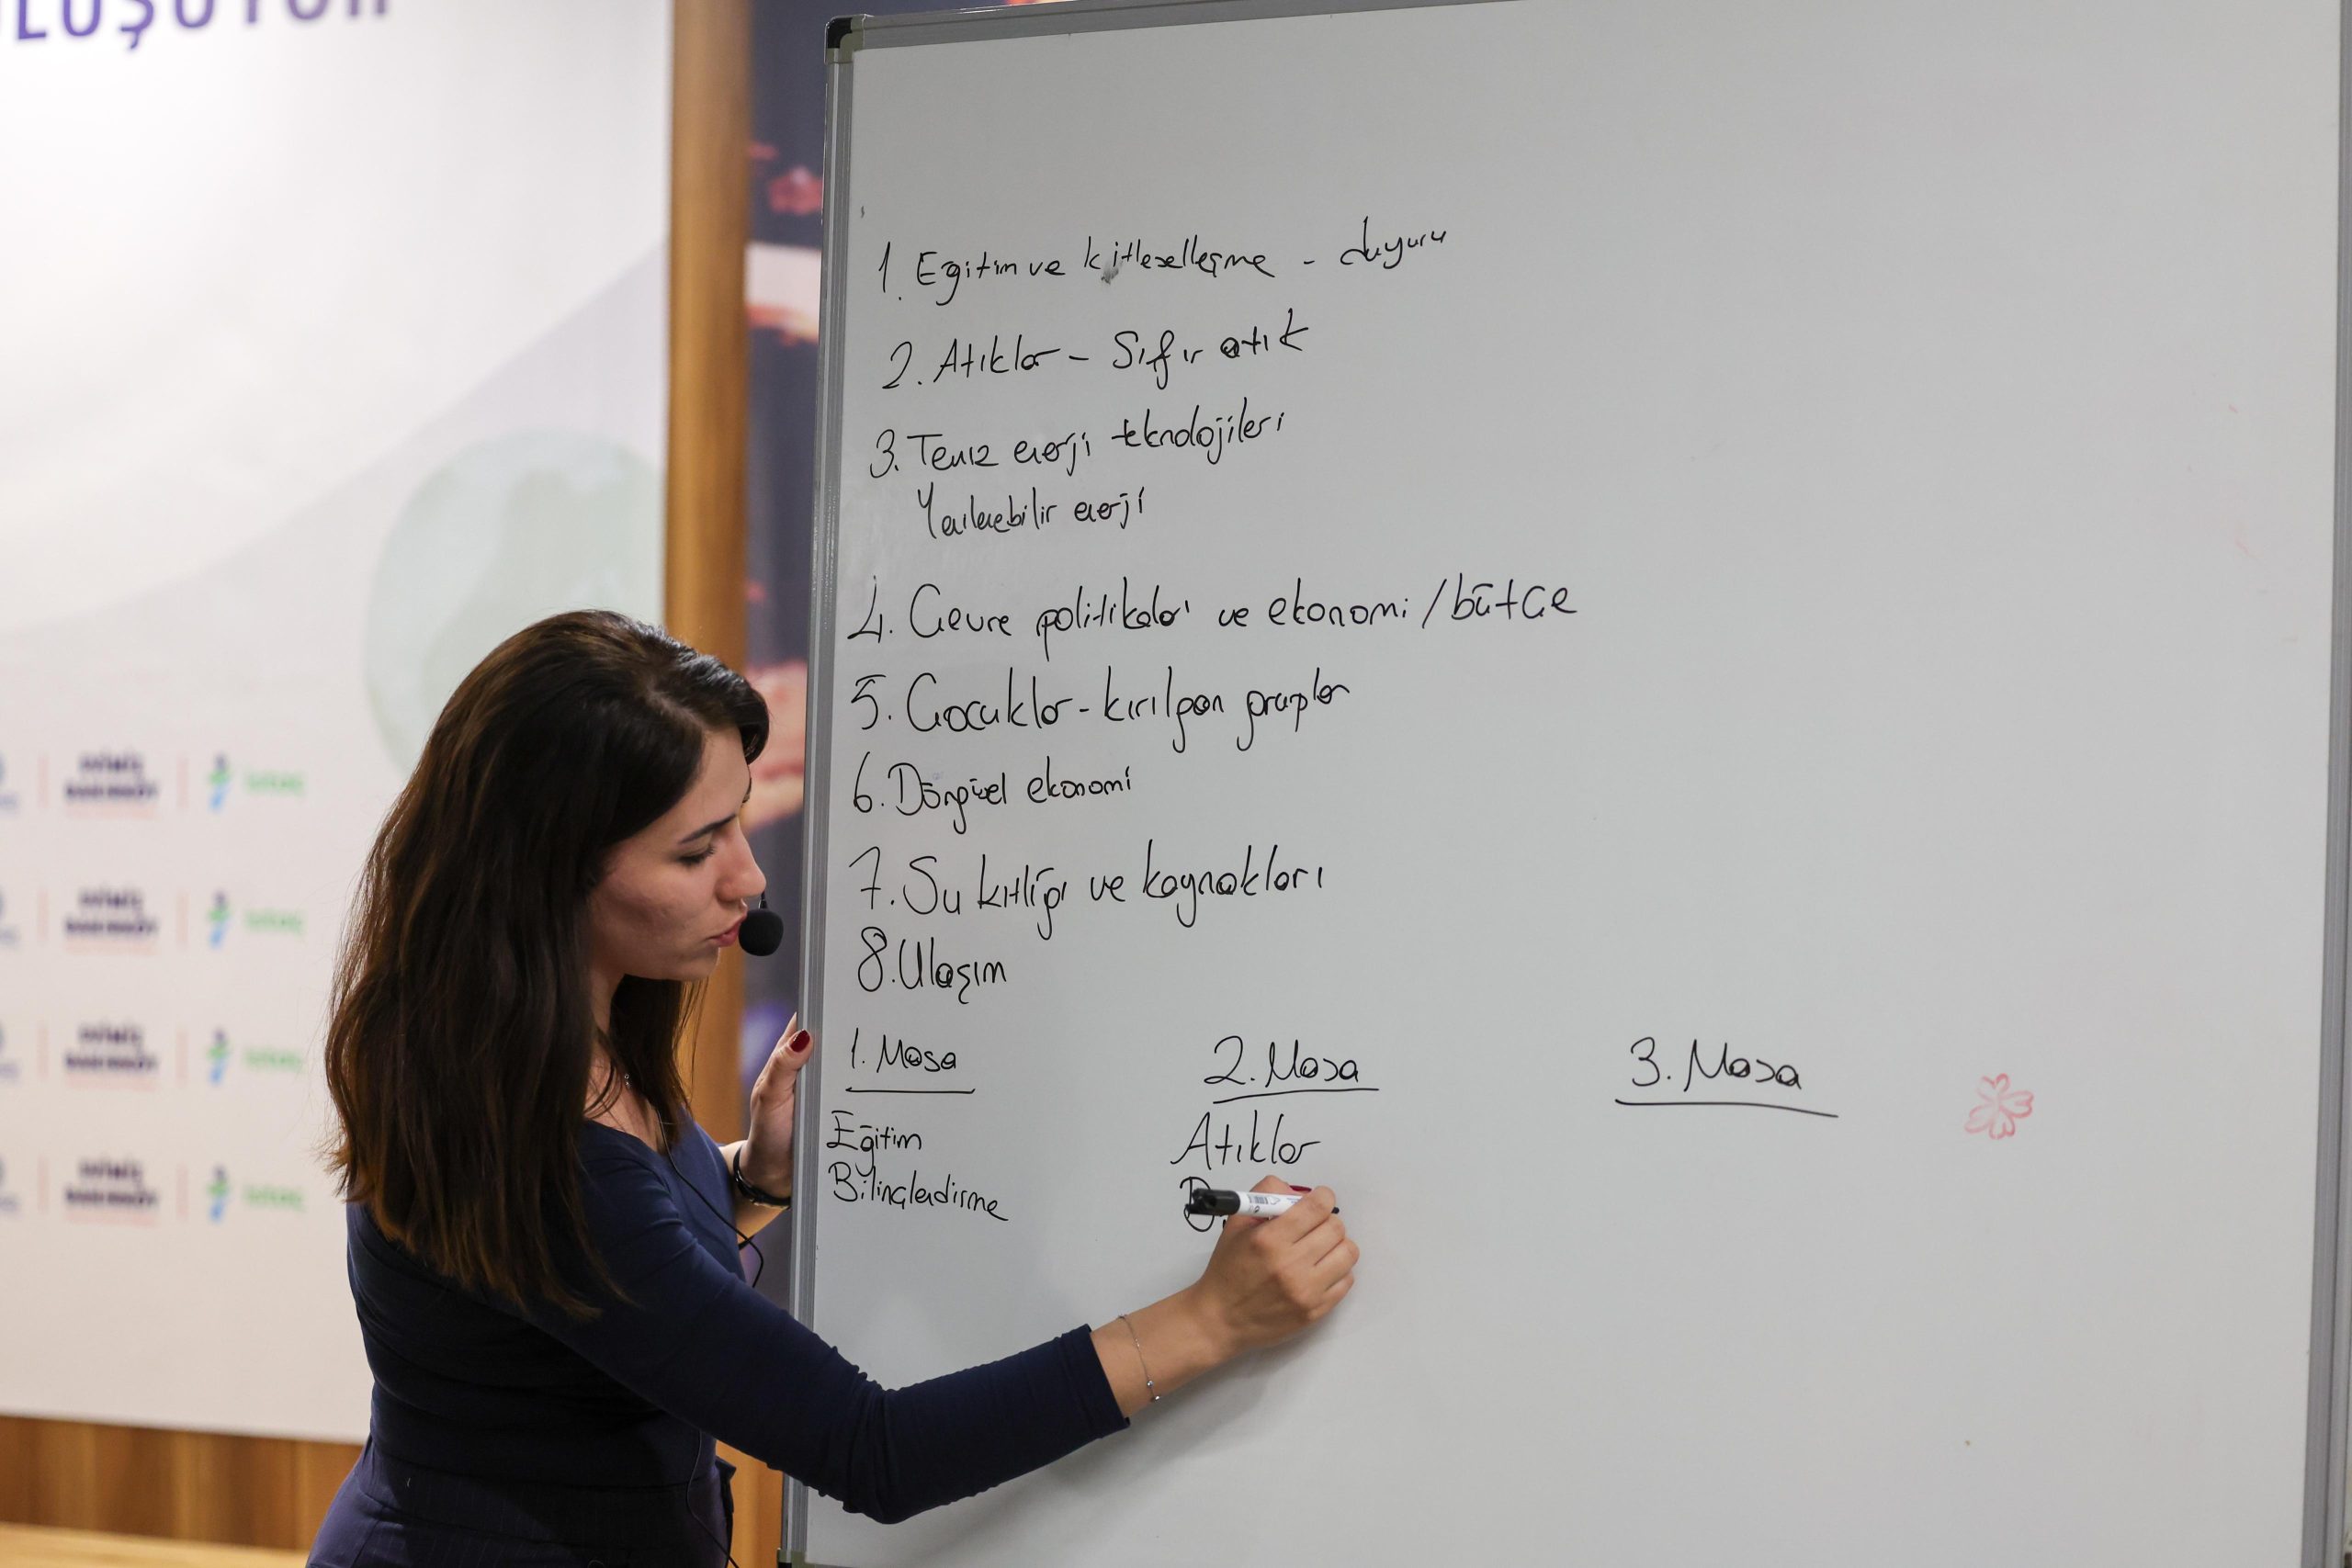 LUŞUYOR
1. Eğitim ve kitleselleşme - duyuru
2. Atıklar - Sıfır atık
3. Temiz enerji teknolojileri
Yenilenebilir enerji
4. Çevre politikaları ve ekonomi / bütçe
5. Çocuklar - kırılgan gruplar
6. Döngüsel ekonomi
7. Su kıtlığı ve kaynakları
8. Ulaşım
1. Masa
2. Masa
3. Masa
Eğitim
Bilinçlendirme
Atıklar
D